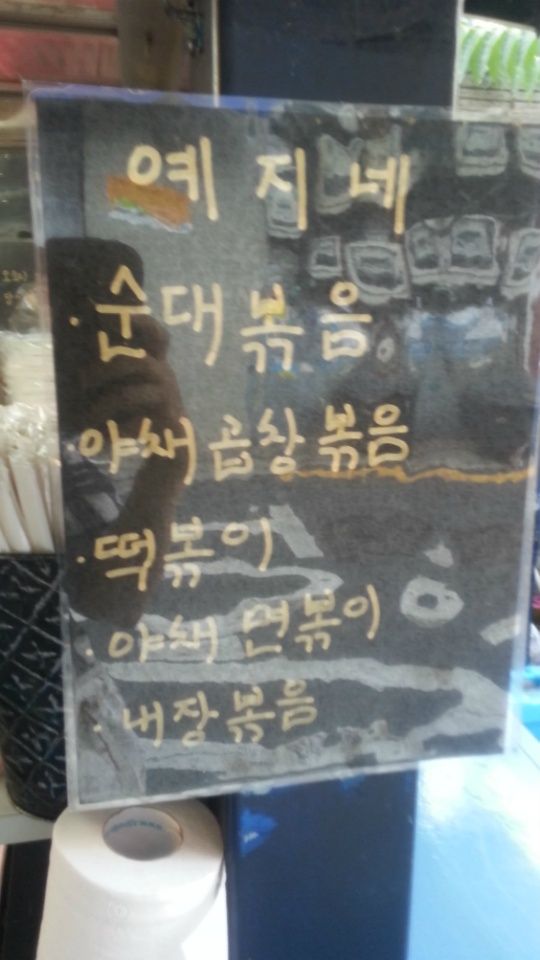 예지네
· 순대볶음
· 야채곱창볶음
· 떡볶이
· 야채 면볶이
· 내장볶음